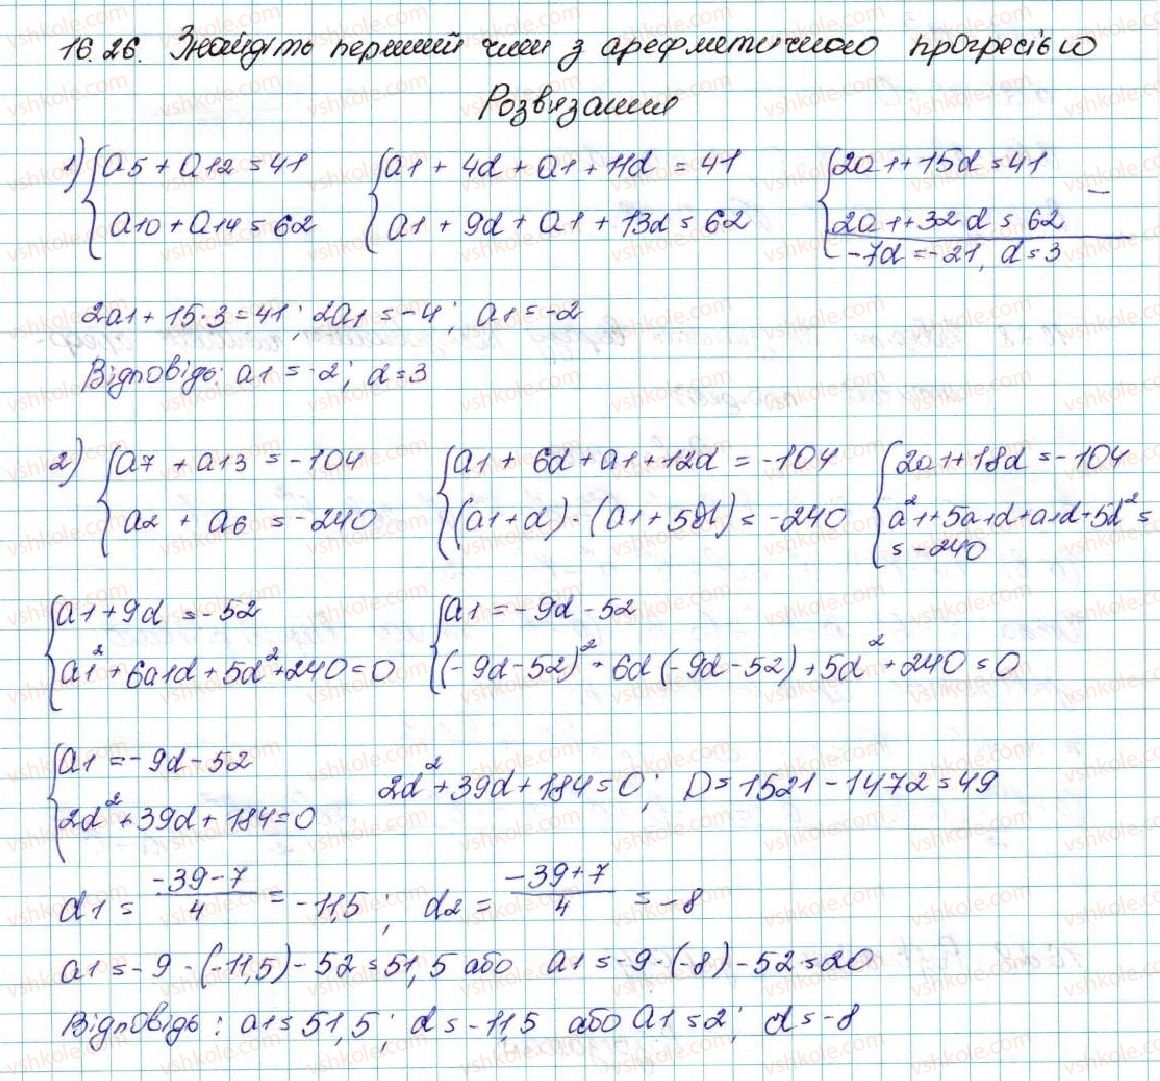 16.26. Знайдіть перший член з арефметичною прогресією
Розвязання
1) {a5 + a12 = 41 {a1 + 4d + a1 + 11d = 41 {2a1 + 15d = 41
a10 + a14 = 62 a1 + 9d + a1 + 13d = 62 2a1 + 32d = 62 −
-7d = -21, d = 3
2a1 + 15·3 = 41; 2a1 = -4; a1 = -2
Відповідь: a1 = -2; d = 3
2) {a7 + a13 = -104 {a1 + 6d + a1 + 12d = -104 {2a1 + 18d = -104
a2 + a6 = -240 (a1 + d) · (a1 + 5d) = -240 a²1 + 5a1d + a1d + 5d² =
= -240
{a1 + 9d = -52 {a1 = -9d - 52
a1² + 6a1d + 5d² + 240 = 0 (-9d - 52)² + 6d(-9d - 52) + 5d² + 240 = 0
{a1 = -9d - 52
2d² + 39d + 184 = 0 2d² + 39d + 184 = 0; D = 1521 - 1472 = 49
d1 = (-39 - 7)/4 = -11,5; d2 = (-39 + 7)/4 = -8
a1 = -9 · (-11,5) - 52 = 51,5 або a1 = -9 · (-8) - 52 = 20
Відповідь: a1 = 51,5; d = -11,5 або a1 = 2; d = -8